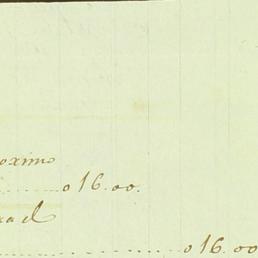 oximo
........ 016.00.
rael
................ 016.00